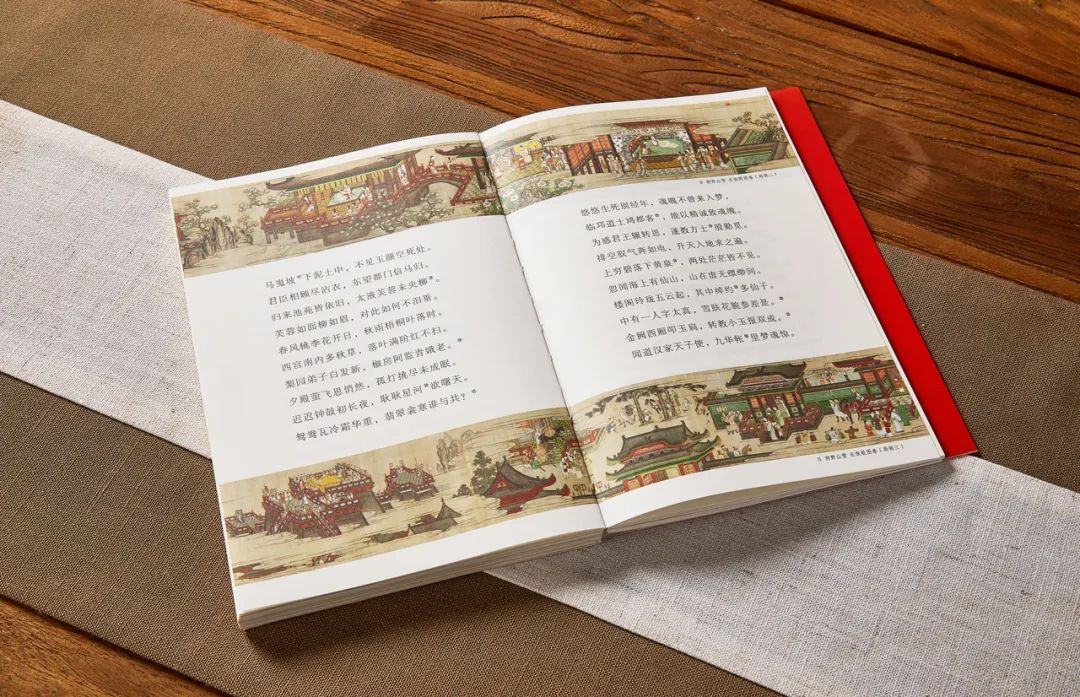 马嵬坡下泥土中，不见玉颜空死处。
君臣相顾尽沾衣，东望都门信马归。
归来池苑皆依旧，太液芙蓉未央柳。
芙蓉如面柳如眉，对此如何不泪垂。
春风桃李花开日，秋雨梧桐叶落时。
西宫南内多秋草，落叶满阶红不扫。
梨园弟子白发新，椒房阿监青娥老。
夕殿萤飞思悄然，孤灯挑尽未成眠。
迟迟钟鼓初长夜，耿耿星河欲曙天。
鸳鸯瓦冷霜华重，翡翠衾寒谁与共？
日 狩野山雪 长恨歌图卷（局部二）
悠悠生死别经年，魂魄不曾来入梦，
临邛道士鸿都客，能以精诚致魂魄。
为感君王辗转思，遂教方士殷勤觅。
排空驭气奔如电，升天入地求之遍。
上穷碧落下黄泉，两处茫茫皆不见。
忽闻海上有仙山，山在虚无缥缈间。
楼阁玲珑五云起，其中绰约多仙子。
中有一人字太真，雪肤花貌参差是。
金阙西厢叩玉扃，转教小玉报双成。
闻道汉家天子使，九华帐里梦魂惊。
日 狩野山雪 长恨歌图卷（局部三）